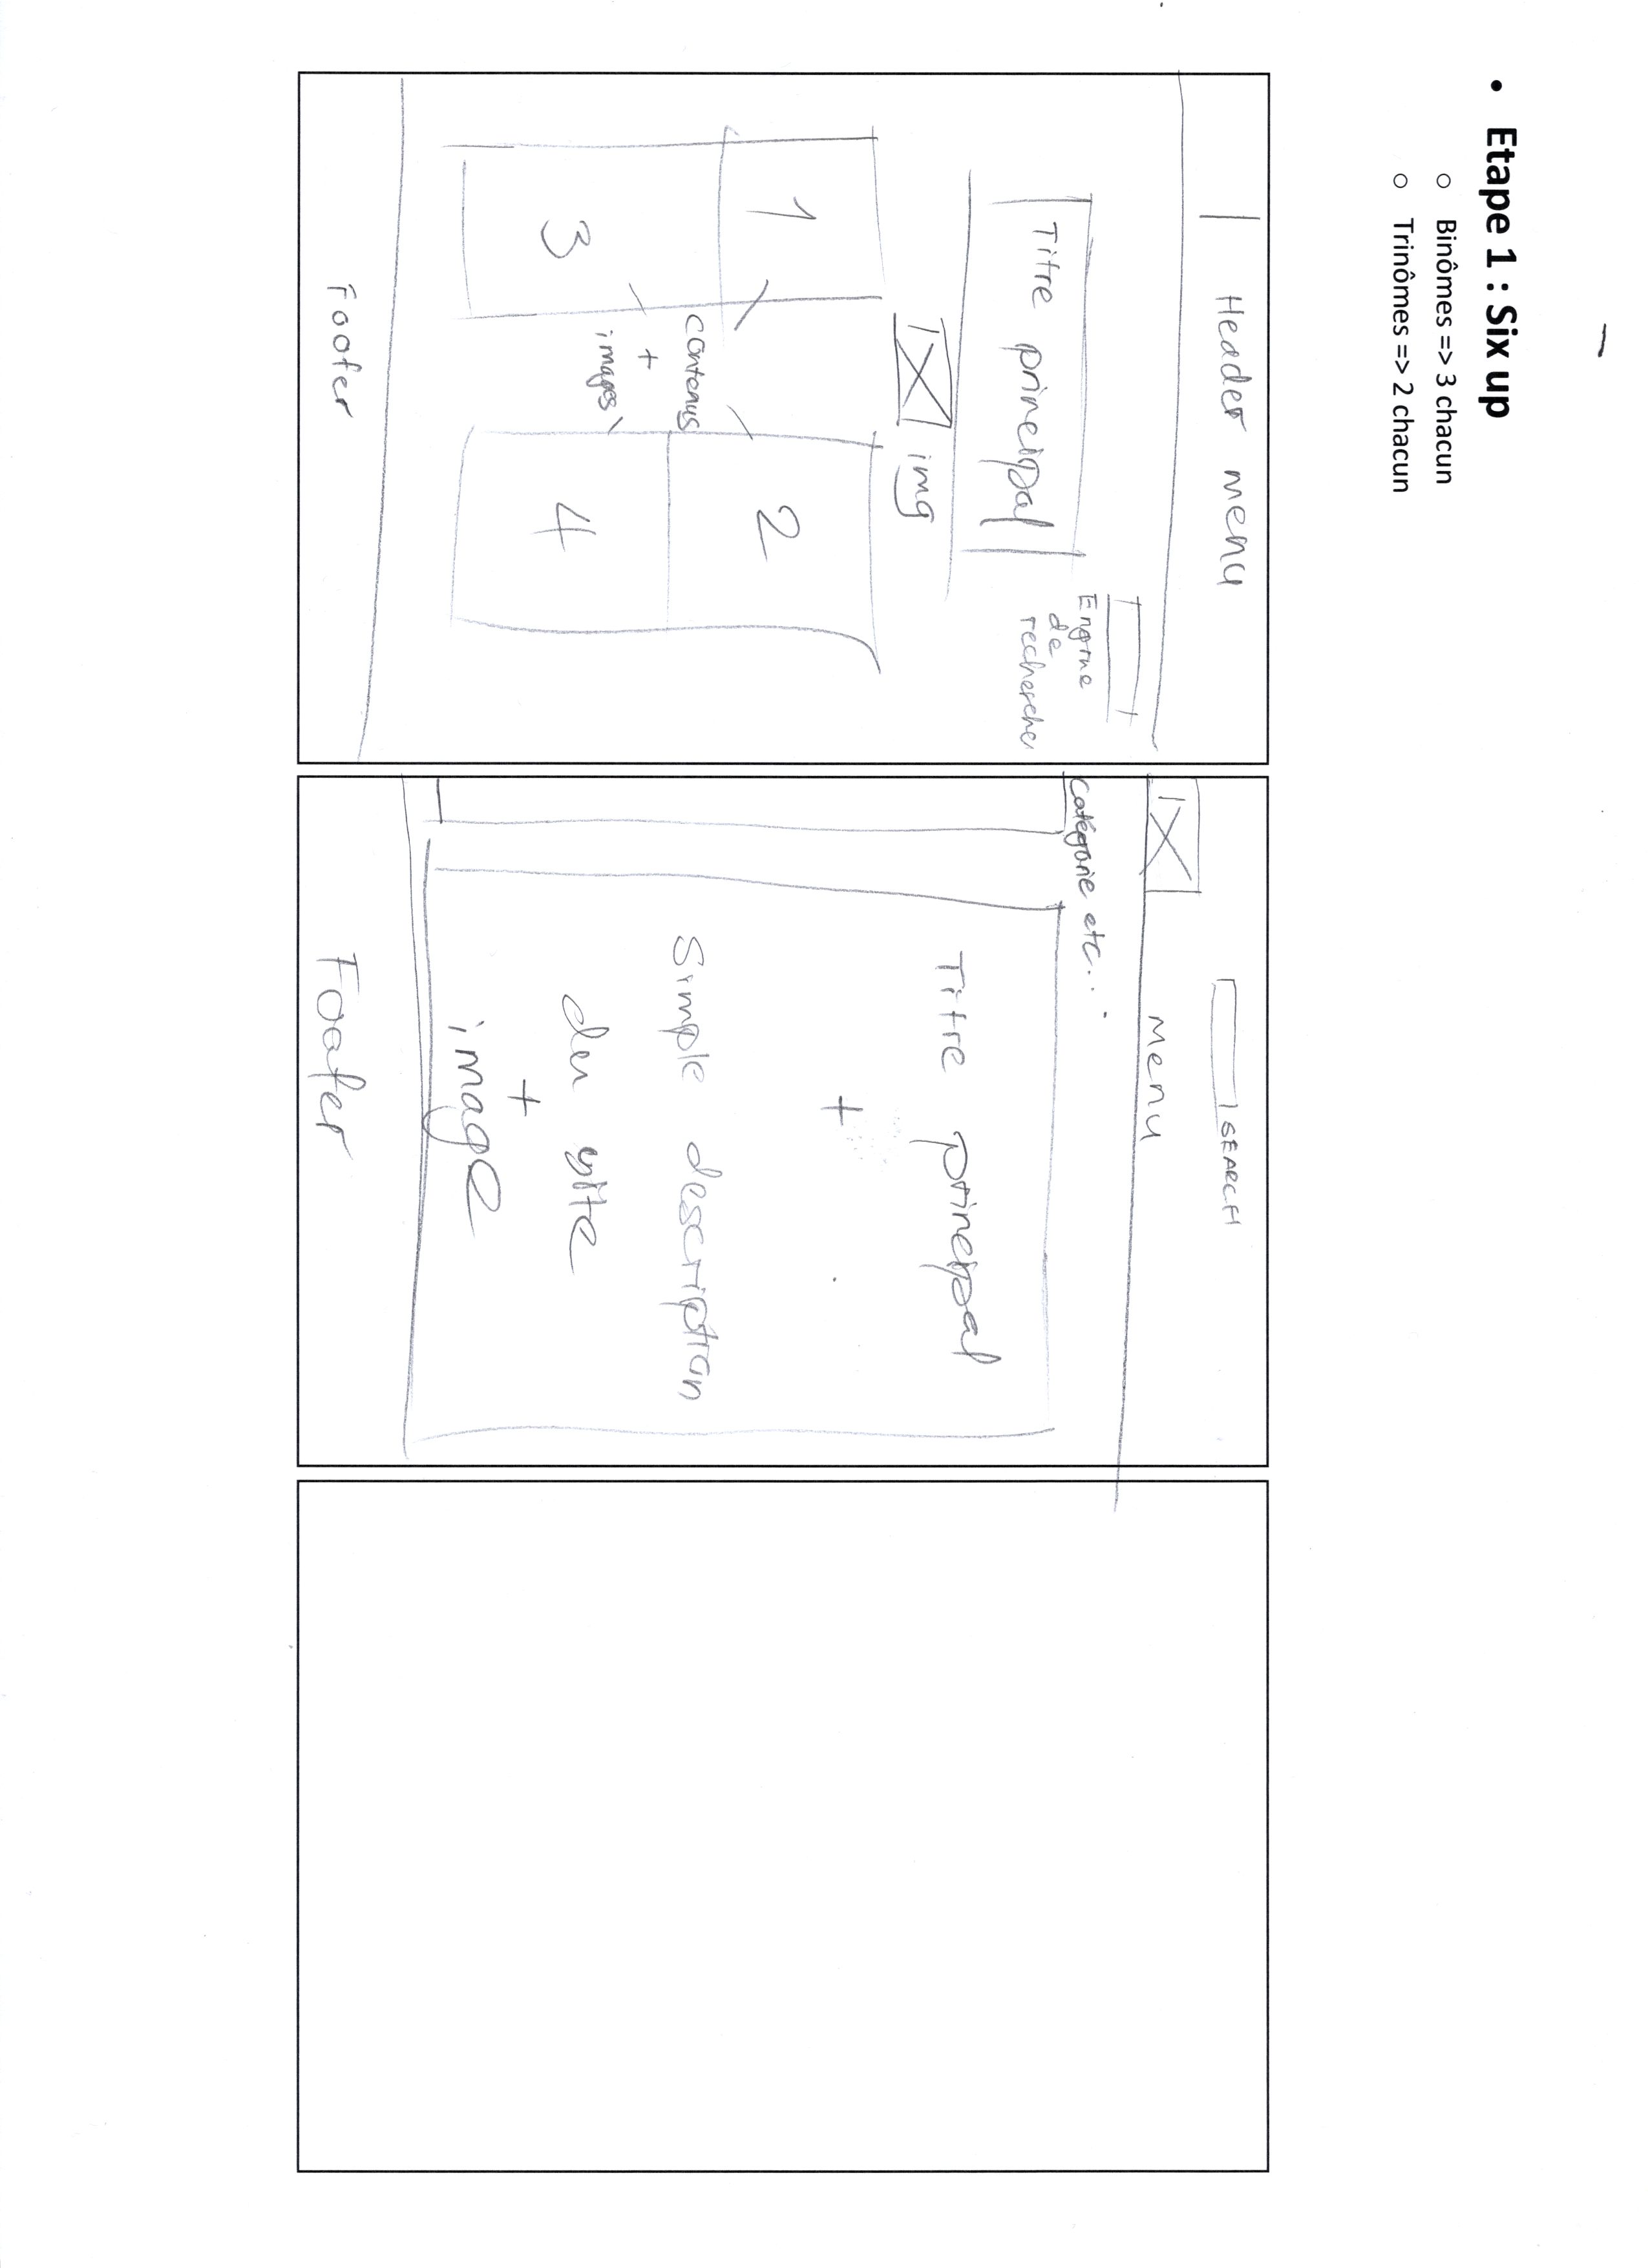 Etape 1 : Six up
Binômes => 3 chacun
Trinômes => 2 chacun
Header menu
Engine
de
recherche
Titre principal
img
1
2
contenus
+
images
3
4
Footer
SEARCH
Menu
Catégorie etc...
Titre principal
+
Simple description
du site
+
image
Footer